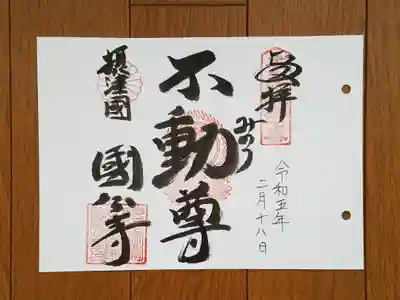 奉拝
令和五年
二月十八日
みのり
不動尊
摂津國
國分寺